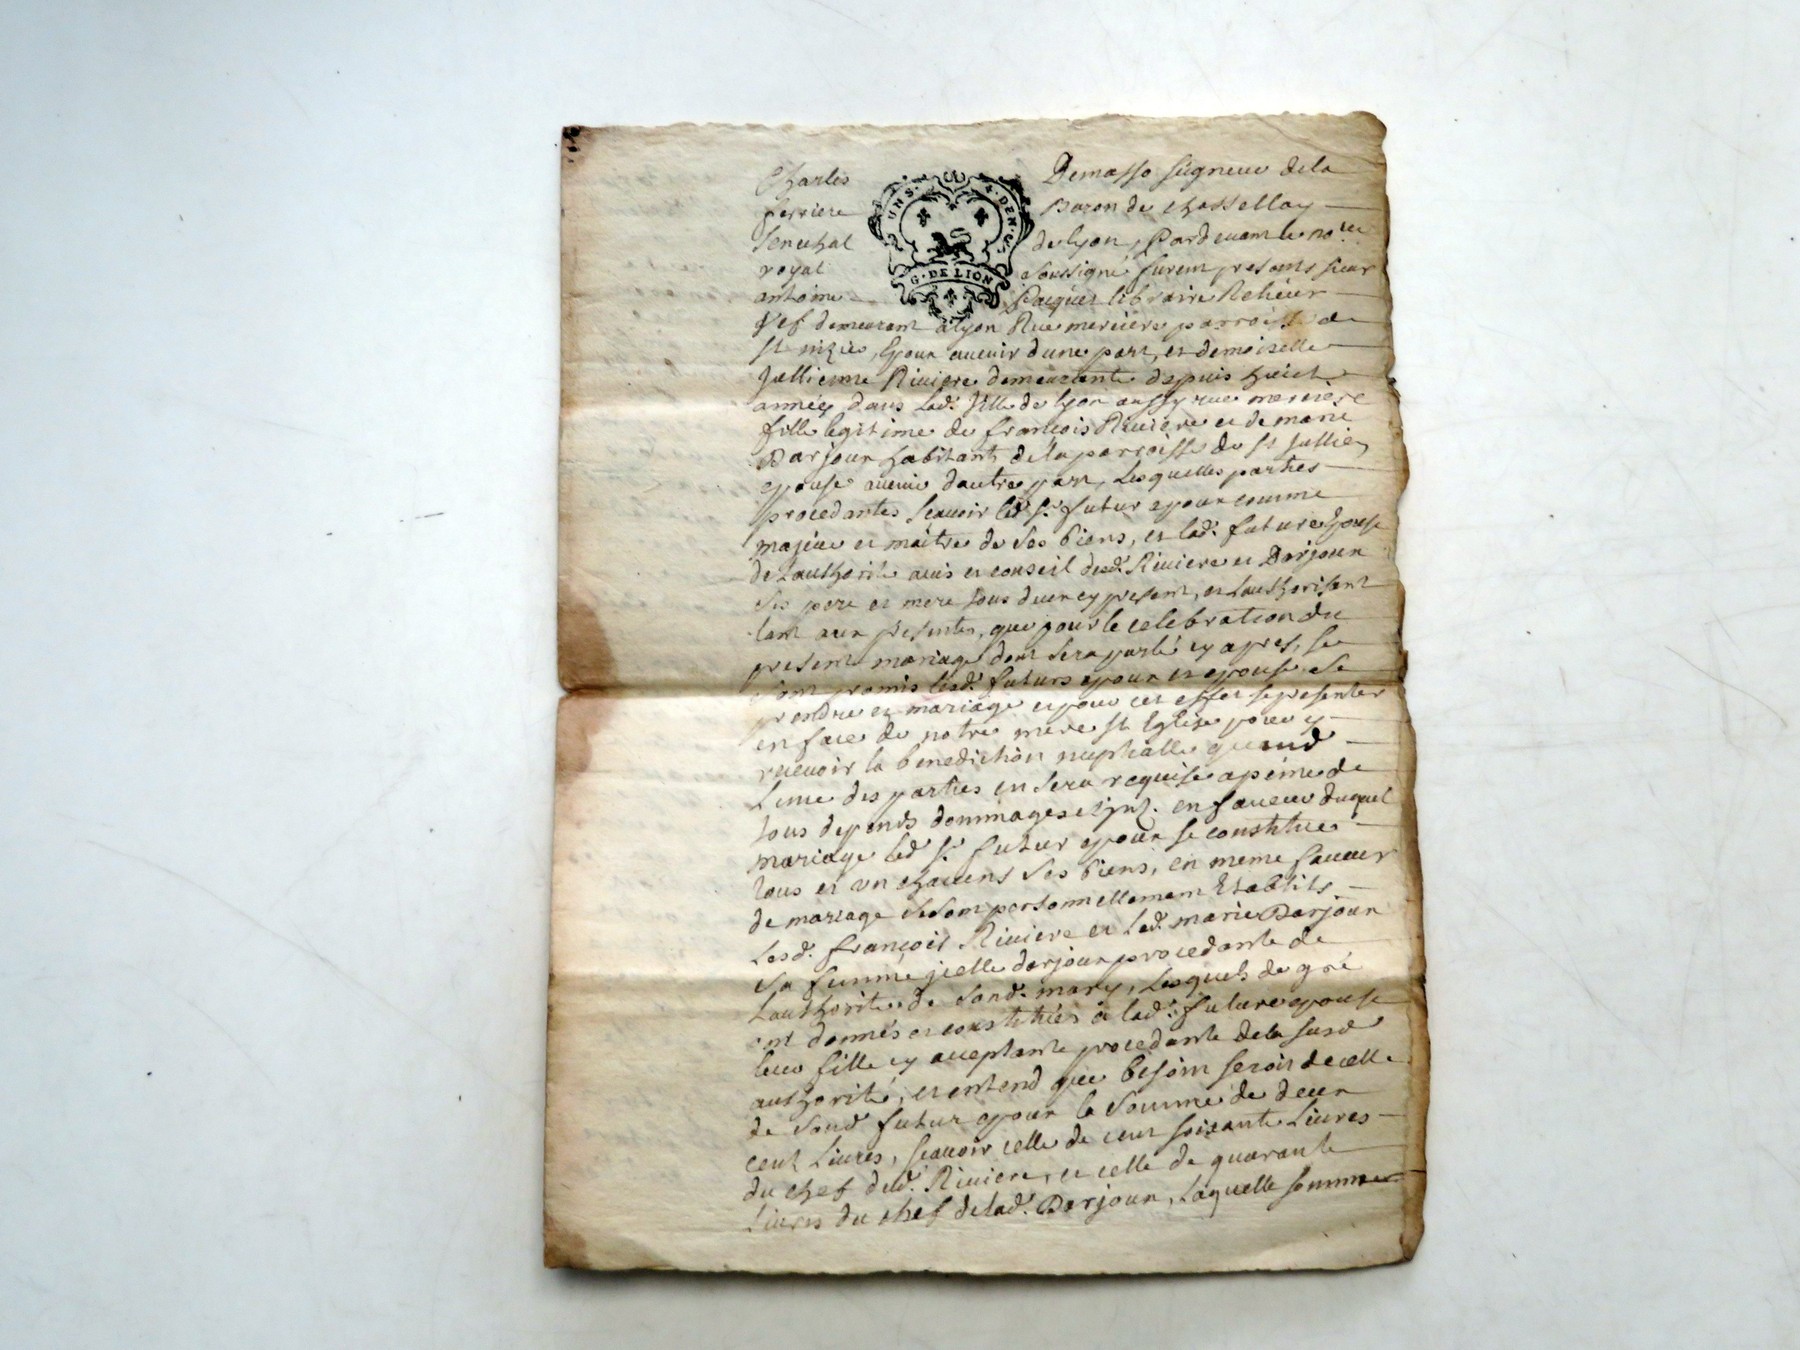 Charles Demasso seigneur dela
ferriere Baron de chassellay
senechal de lyon, Pardevant le no.re
royal soussigné furent presents sieur
antoine Pacquet libraire Relieur
demeurant a lyon Rue merciere parroisse de
st nizier, Epoux avenir dune part, et demoiselle
Jullienne Riviere demeurante depuis huict
années dans lad. Ville de lyon aussy rue merciere
fille legitime de françois Riviere et de marie
Darjoux habitants de la parroisse de st Jullien
epouse avenir dautre part, Lesquelles parties
procedantes scavoir led. sr. futur epoux comme
majeur et maitre de ses biens, et lad. future Epouse
de Lauthorité avis et conseil desd. Riviere et Darjoux
ses pere et mere tous deux cy present, et Lauthorisent
tant aux presentes, que pour le celebration du
present mariage dont sera parlé cy apres, se
sont promis lesd. futurs epoux et epouse se
prendre en mariage et pour cet effet se presenter
en face de notre mere st Eglise pour y
recevoir la benediction nuptialle quand
Lune des parties en sera requise a peine de
tous depends dommages en faveur duquel
mariage led. sr. futur epoux se constitue
tous et un chacuns ses biens, en meme faveur
de mariage se sont personnellement Etablits
Lesd. françois Riviere et lad. marie Darjoux
sa femme jcelle darjoux procedante de
Lauthorité de sond. mary, Lesquels de gré
ont donnés et constitués à lad. future epouse
leur fille cy acceptante procedante dela susd
authorité, et entend que besoin seroit de celle
de sond futur epoux la somme de deux
cent Livres, scavoir celle de cent soixante Livres
du chef dud. Riviere, et celle de quarante
Livres du chef de lad. Darjoux, Laquelle somme
UN S. X. DEN. G. DE LION